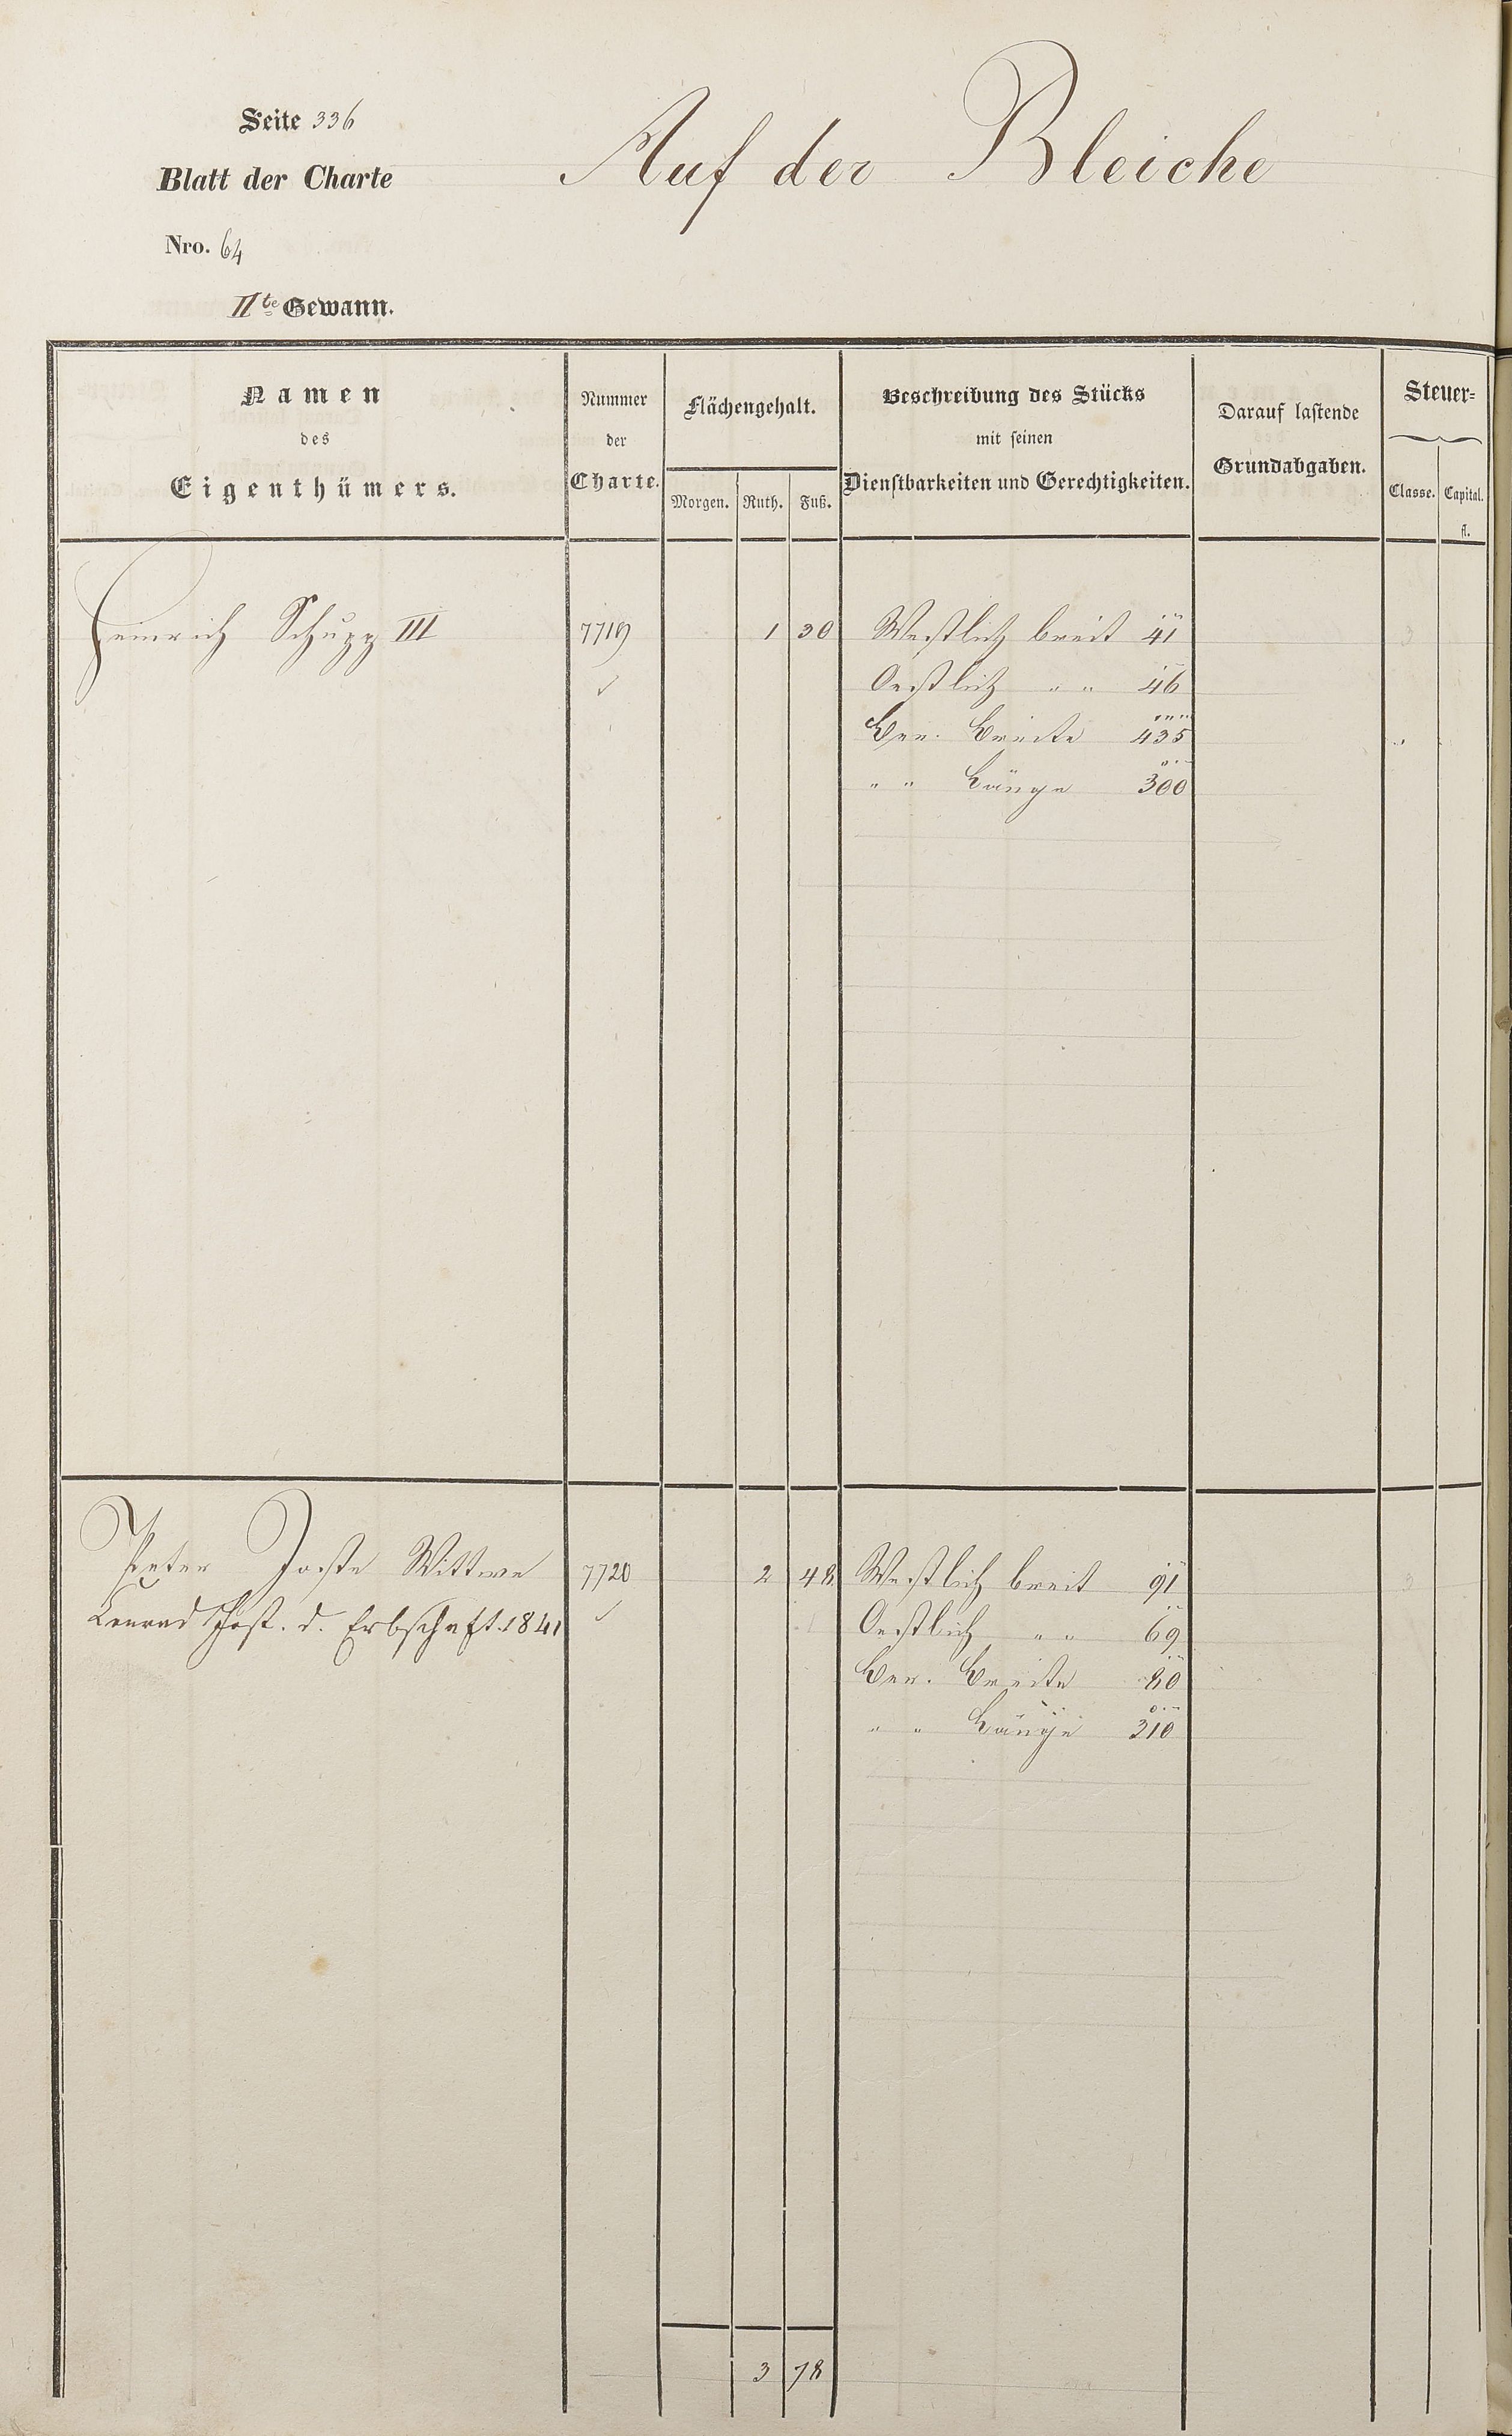 Seite 336
Auf der Bleiche
Blatt der Charte
Nro. 64
IIte Gewann.
Namen
des
Eigenthümers.
Nummer
der
Charte.
Flächengehalt.
Morgen. Ruth. Fuß.
Beschreibung des Stücks
mit seinen
Dienstbarkeiten und Gerechtigkeiten.
Darauf lastende
Grundabgaben.
Steuer-
Classe. Capital.
fl.
Heinrich Schupp III 7719 1 30 Westlich breit 41 3
Oestlich " " 46
Ber. Breite 435
" " Länge 300
Peter Joste Wittwe 7720 2 48 Westlich breit 91 3
Conrad Jost. d. Erbschaft. 1841 Oestlich " " 69
Ber. Breite 80
" " Länge 310
3 78